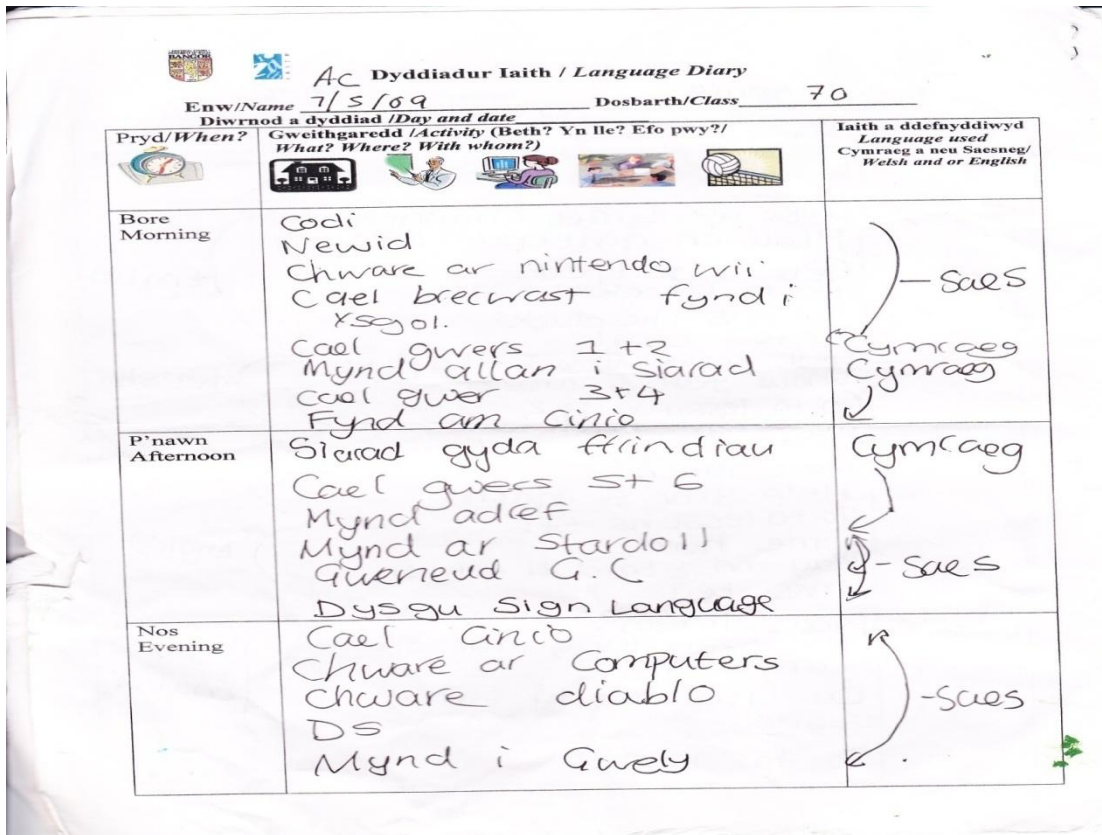 BANGOR
AC Dyddiadur Iaith / Language Diary
Enw/Name 7/5/09 Dosbarth/Class 70
Diwrnod a dyddiad /Day and date
Pryd/When?
Gweithgaredd /Activity (Beth? Yn lle? Efo pwy?/
What? Where? With whom?)
Iaith a ddefnyddiwyd
Language used
Cymraeg a neu Saesneg/
Welsh and or English
Bore
Morning
Codi
Newid
Chware ar nintendo wii
Cael brecwast fynd i
Ysgol.
Cael gwers 1+2
Mynd allan i siarad
Cael gwer 3+4
Fynd am Cinio
- Saes
Cymraeg
Cymraeg
P'nawn
Afternoon
Siarad gyda ffrindiau
Cael gwers 5+6
Mynd adref
Mynd ar Stardoll
Gweneud G.C
Dysgu Sign Language
Cymraeg
- Saes
Nos
Evening
Cael Cinio
Chware ar Computers
Chware diablo
DS
Mynd i Gwely
-Saes